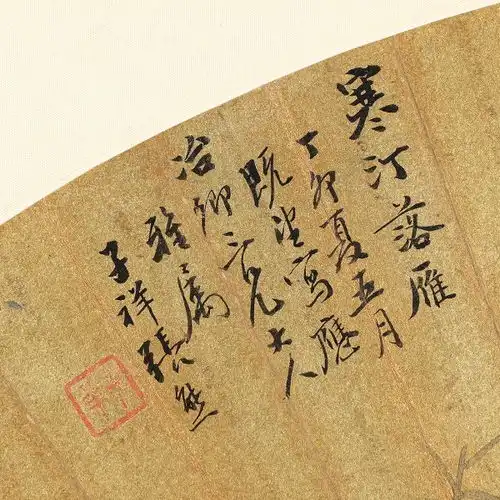 寒汀落雁
丁卯夏五月
既望寫應
冶卿三兄大人
雅屬
子祥張熊